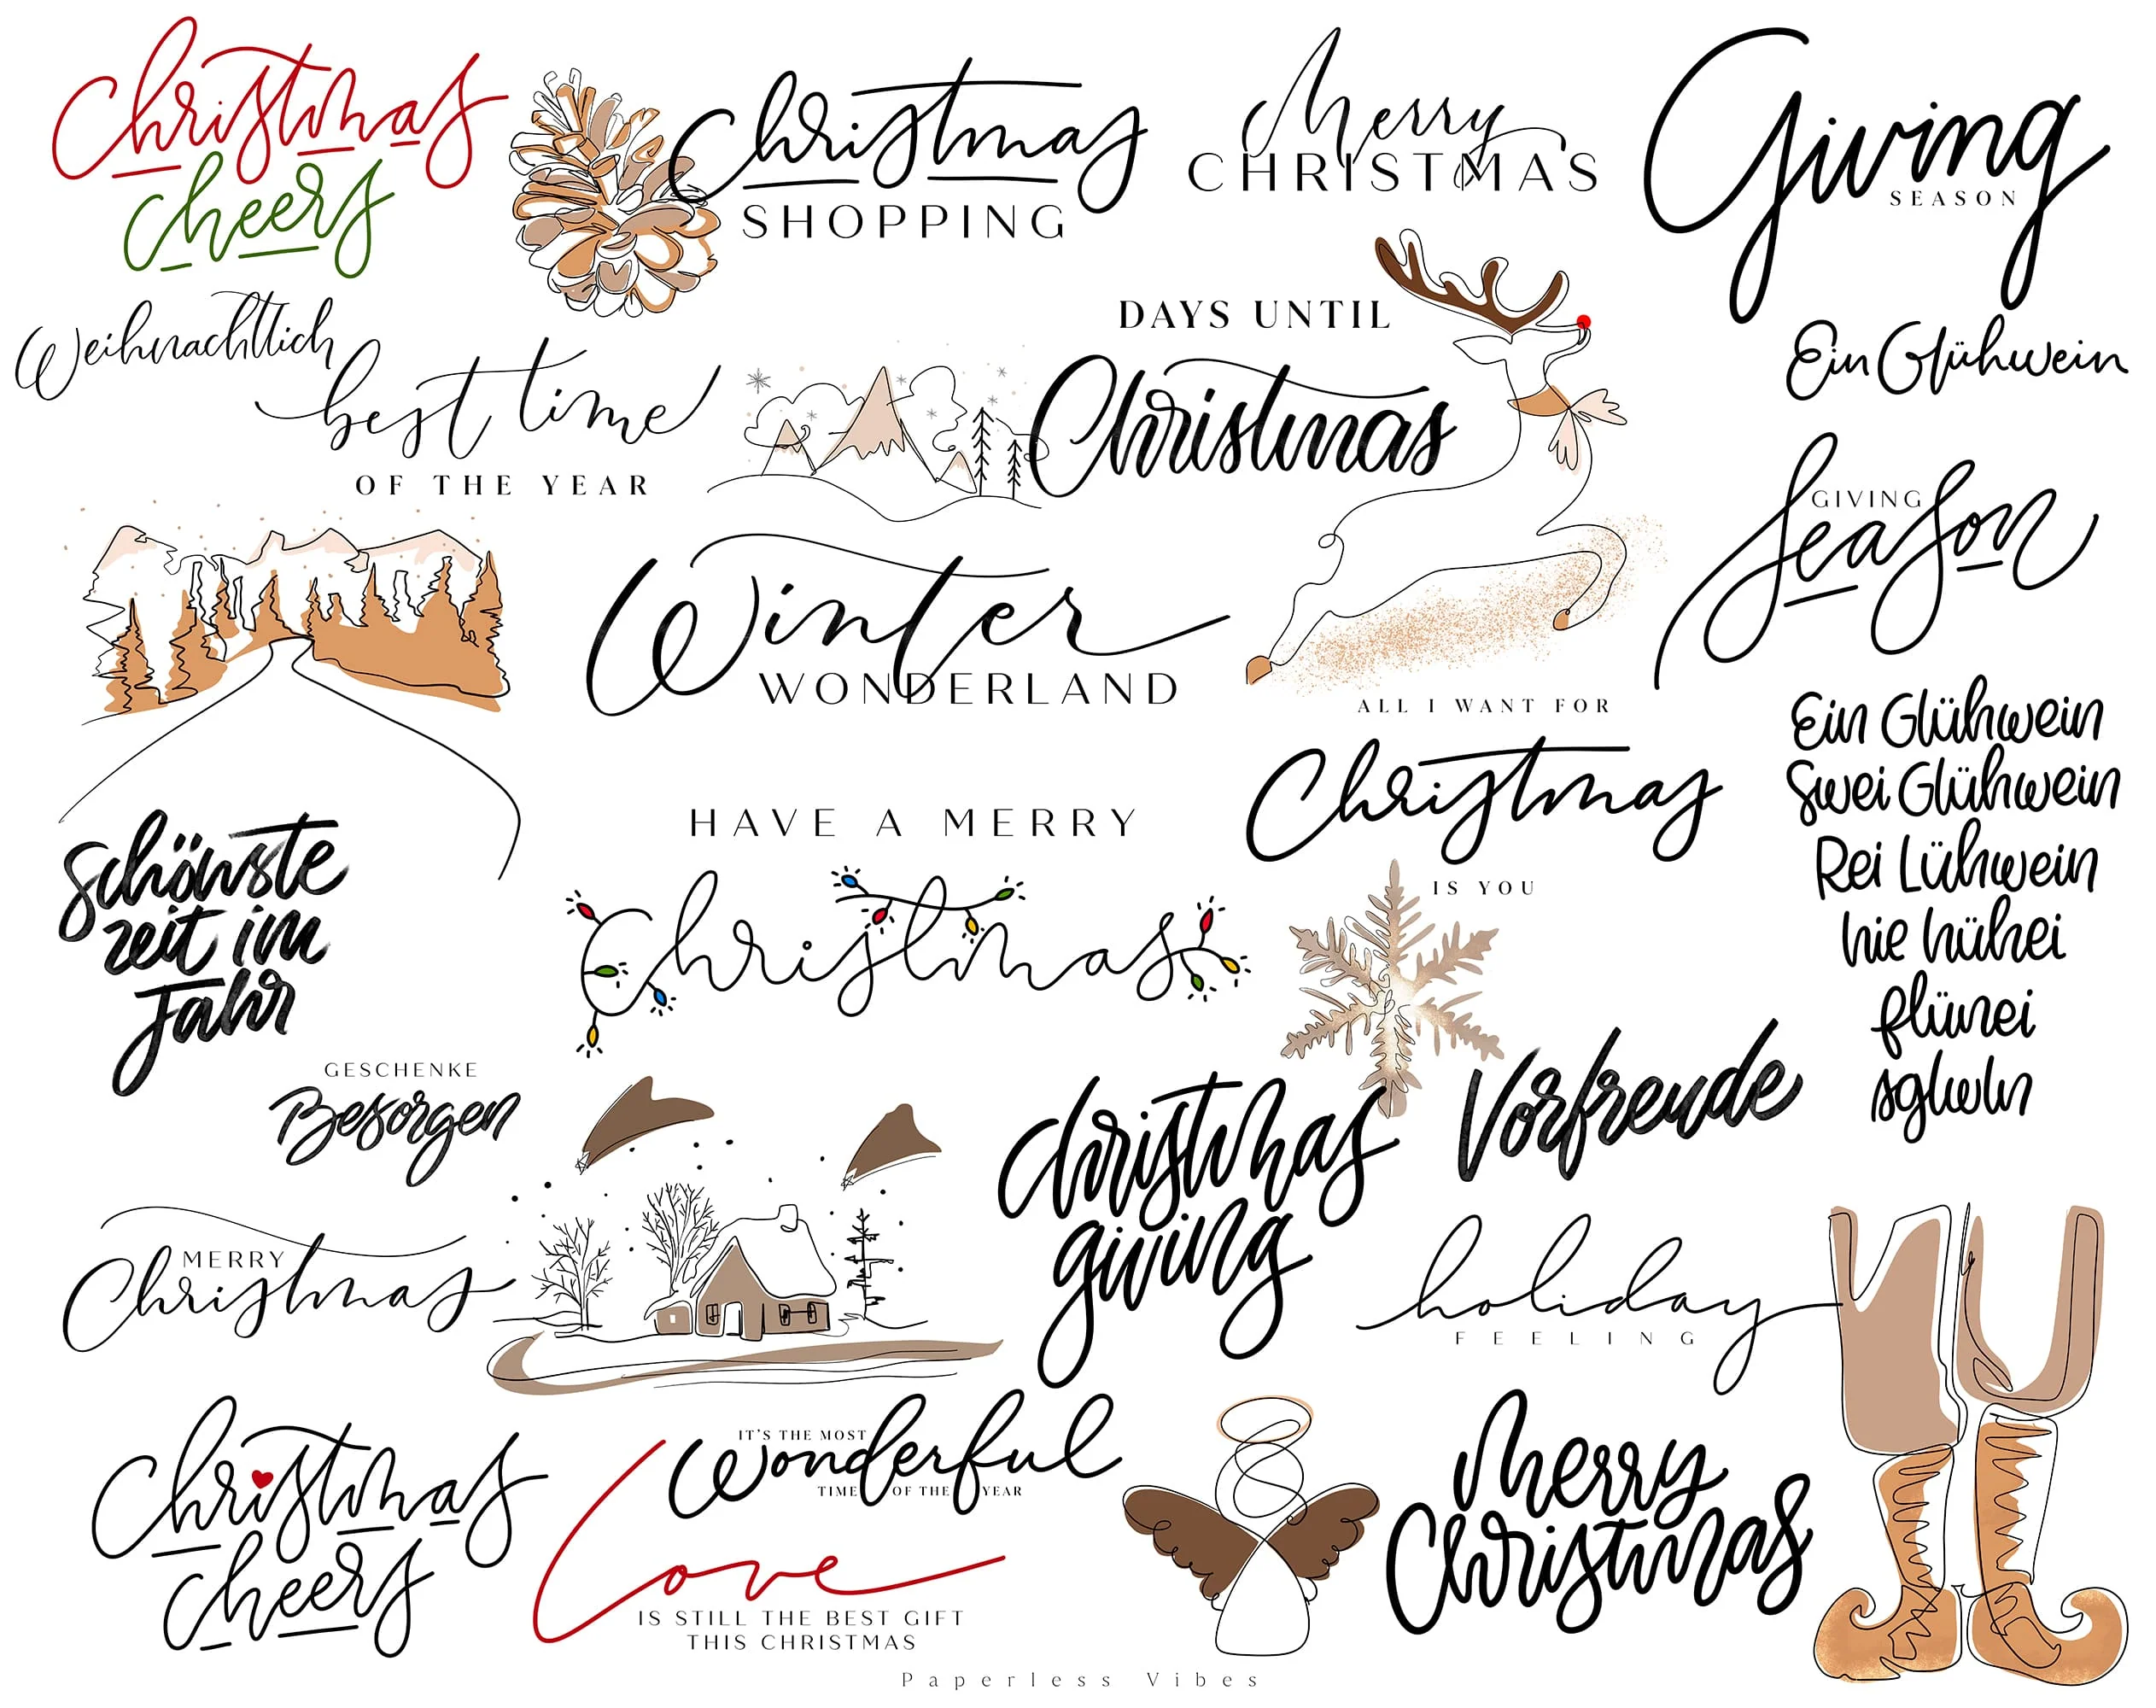 Christmas
cheers
Christmas
SHOPPING
Merry
CHRISTMAS
Giving
SEASON
Weihnachtlich
best time
OF THE YEAR
DAYS UNTIL
Christmas
Ein Glühwein
GIVING
Season
Winter
WONDERLAND
ALL I WANT FOR
Christmas
IS YOU
Ein Glühwein
Swei Glühwein
Rei Lühwein
hie hühei
flünei
sglwln
schönste
zeit im
Jahr
HAVE A MERRY
Christmas
GESCHENKE
Besorgen
christmas
giving
Vorfreude
MERRY
Christmas
holiday
FEELING
Christmas
cheers
IT'S THE MOST
wonderful
TIME OF THE YEAR
Love
IS STILL THE BEST GIFT
THIS CHRISTMAS
Merry
Christmas
Paperless Vibes